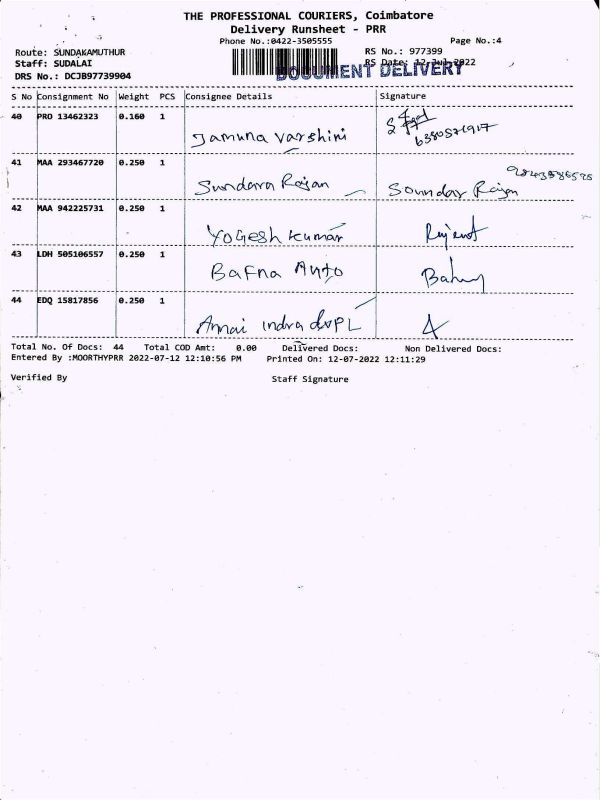 THE PROFESSIONAL COURIERS, Coimbatore
Delivery Runsheet - PRR
Phone No.:0422-3505555 Page No.:4
Route: SUNDAKAMUTHUR RS No.: 977399
Staff: SUDALAI RS Date: 12-Jul-2022
DRS No.: DCJB97739904 DOCUMENT DELIVERY
S No Consignment No Weight PCS Consignee Details Signature
40 PRO 13462323 0.160 1 Jamuna Varshini
41 MAA 293467720 0.250 1 Sundara Rajan Soundar Rajan
42 MAA 942225731 0.250 1 Yogesh Kumar
43 LDH 505106557 0.250 1 Bafna Auto
44 EDQ 15817856 0.250 1 Annai indra
Total No. Of Docs: 44 Total COD Amt: 0.00 Delivered Docs: Non Delivered Docs:
Entered By :MOORTHYPRR 2022-07-12 12:10:56 PM Printed On: 12-07-2022 12:11:29
Verified By Staff Signature